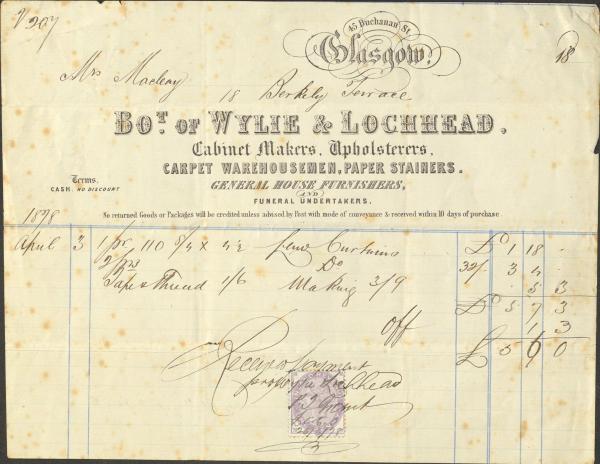 V 207
45 Buchanan St.
Glasgow.
18
Mrs Macleay
18 Berkely Terrace
BOT. OF WYLIE & LOCHHEAD.
Cabinet Makers, Upholsterers,
CARPET WAREHOUSEMEN, PAPER STAINERS.
GENERAL HOUSE FURNISHERS,
(AND)
FUNERAL UNDERTAKERS.
Terms.
CASH. NO DISCOUNT
No returned Goods or Packages will be credited unless advised by Post with mode of conveyance & received within 10 days of purchase
1878
April 3 1 pr 110 Curtains £ 1 18
Do 32/. 3 4
Tape & Thread 1/6 Making 3/9 5 3
£ 5 7 3
Off 1 3
£ 5 6 0
Received payment
pro Wylie & Lochhead